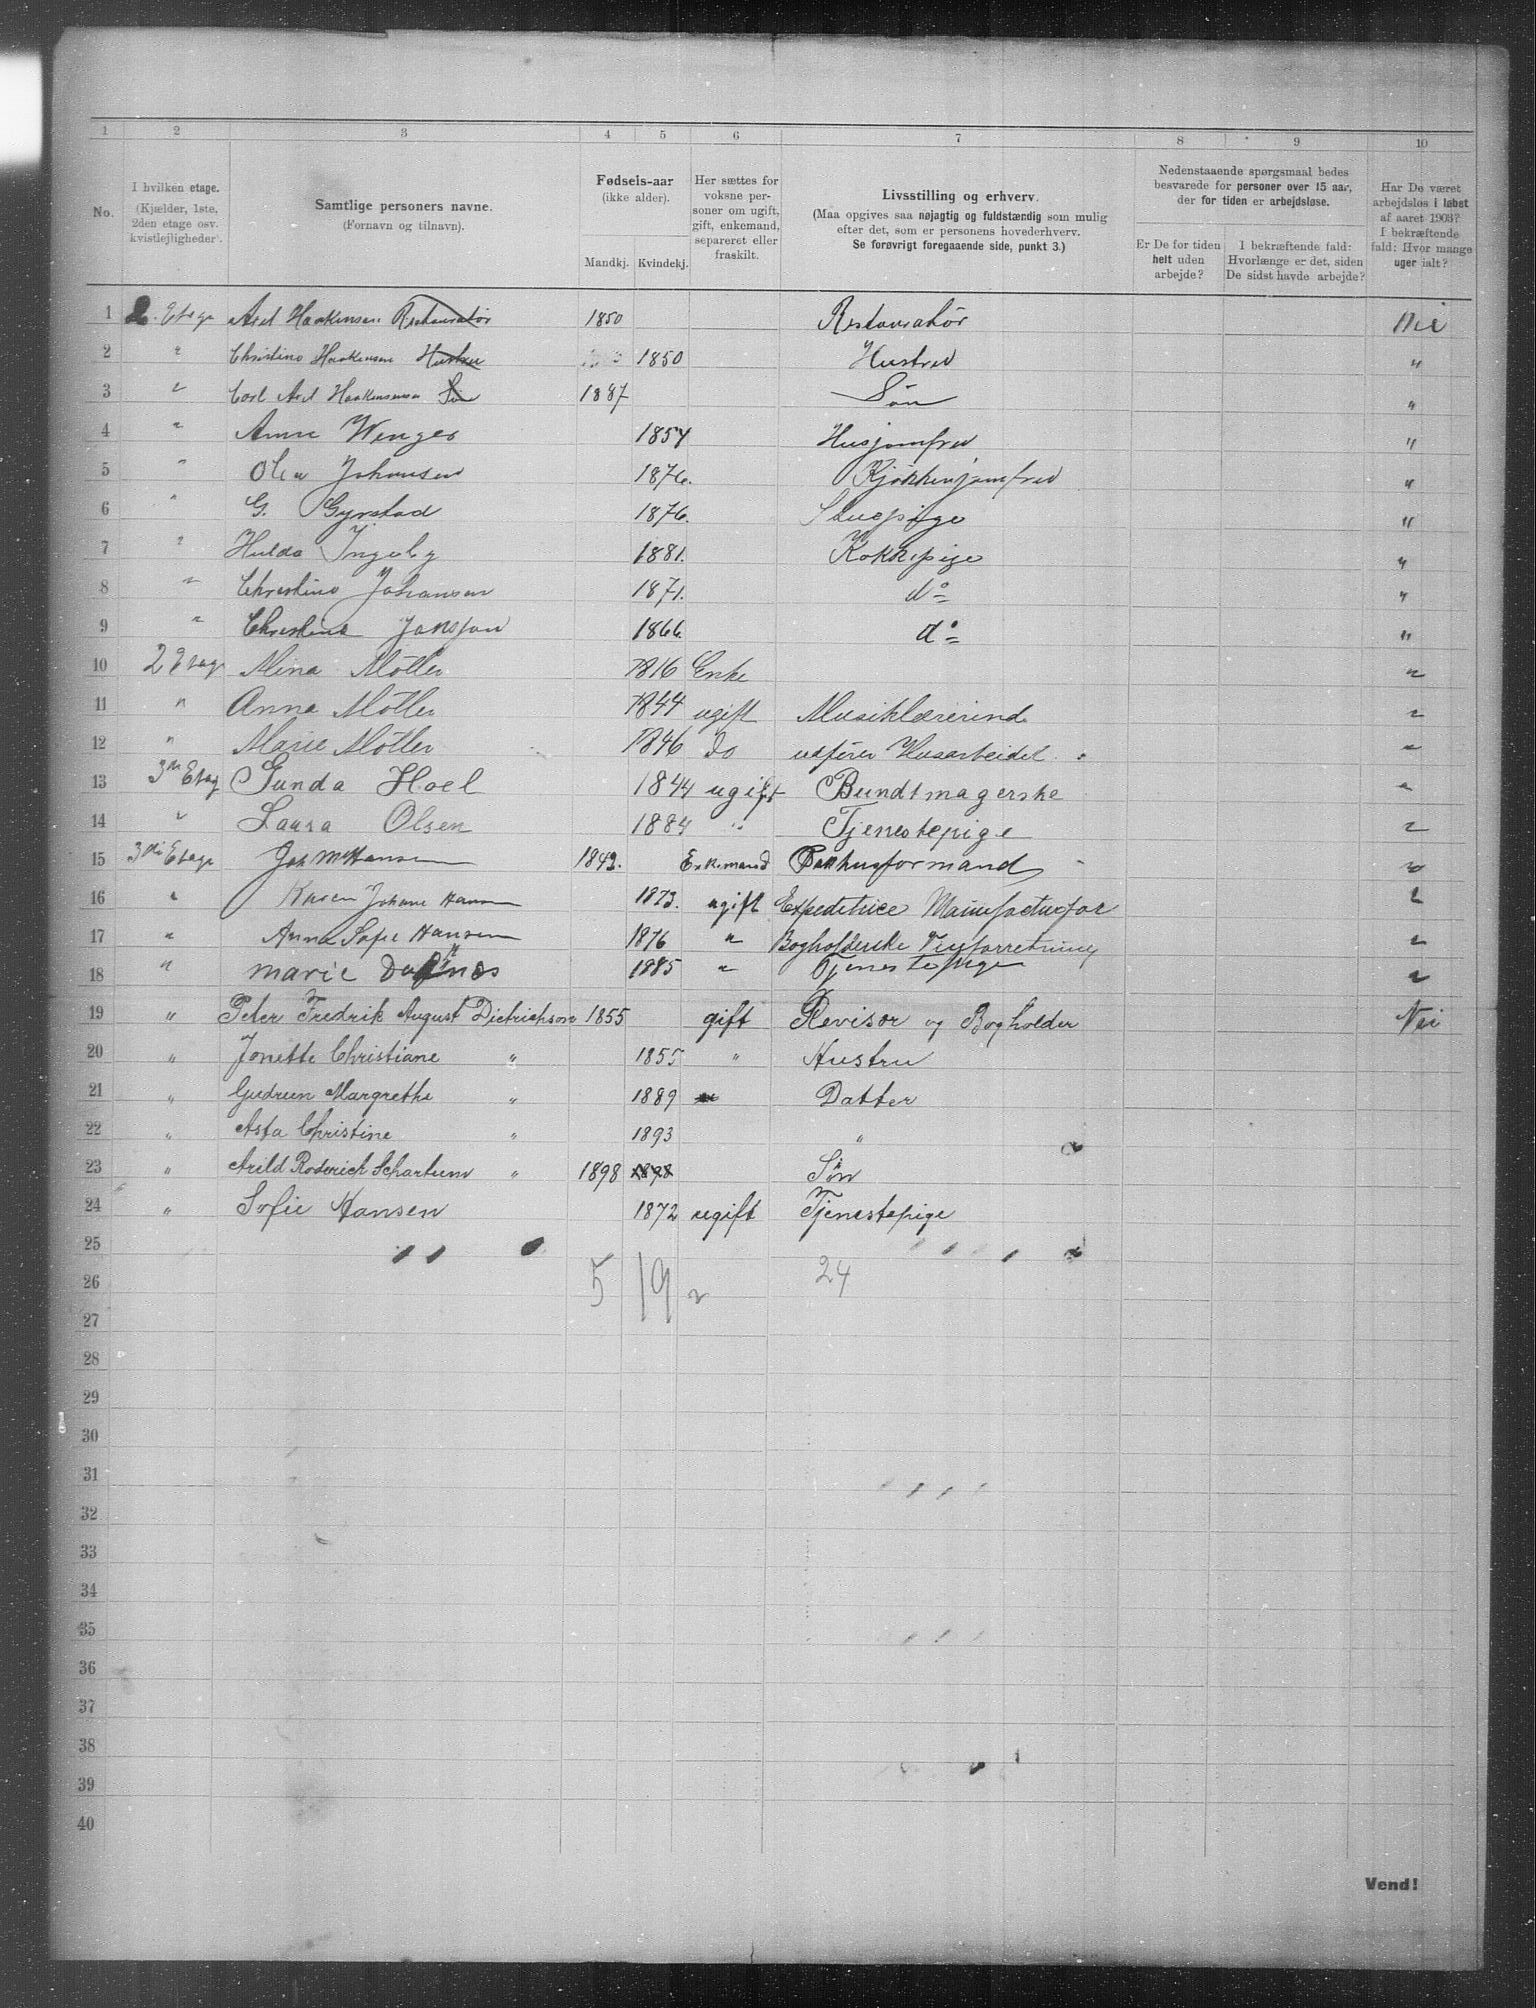 1 2 3 4 5 6 7 8 9 10
No.
I hvilken etage.
(Kjælder, 1ste,
2den etage osv.
kvistlejligheder).
Samtlige personers navne.
(Fornavn og tilnavn).
Fødsels-aar
(ikke alder).
Mandkj. Kvindekj.
Her sættes for
voksne per-
soner om ugift,
gift, enkemand,
separeret eller
fraskilt.
Livsstilling og erhverv.
(Maa opgives saa nøjagtig og fuldstændig som mulig
efter det, som er personens hovederhverv.
Se forøvrigt foregaaende side, punkt 3.)
Nedenstaaende spørgsmaal bedes
besvarede for personer over 15 aar,
der for tiden er arbejdsløse.
Er De for tiden
helt uden
arbejde?
I bekræftende fald:
Hvorlænge er det, siden
De sidst havde arbejde?
Har De været
arbejdsløs i løbet
af aaret 1903?
I bekræftende
fald: Hvor mange
uger ialt?
1 2. Etage Axel Haakensen Restauratør 1850 Restauratør Nei
2 " Christine Haakensen Hustru 1850 Hustru "
3 " Carl Axel Haakensen Søn 1887 Søn "
4 " Anne Wenger 1854 Husjomfru "
5 " Olea Johansen 1876. Kjøkkenjomfru "
6 " G. Gyrstad 1876. Stuepige "
7 " Hulda Ingeby 1881. Kokkepige "
8 " Christine Johansen 1871. do "
9 " Christina Jansson 1866. do "
10 2 Etage Mina Møller 1816 Enke "
11 " Anna Møller 1844 ugift Musiklærerinde "
12 " Marie Møller 1846 do udfører Husarbeidet. "
13 3die Etag Gunda Hoel 1844 ugift Bundtmagerske "
14 " Laura Olsen 1884 " Tjenestepige "
15 3die Etage Joh M Hansen 1842. Enkemand Pakhusformand "
16 " Karen Johanne Hansen 1873. ugift Expeditrice Manufacturfor "
17 " Anna Sofie Hansen 1876 " Bogholderske Tøyforretning "
18 " Marie 1885 " Tjenestepige "
19 " Peter Fredrik August Dietrichson 1855 gift Revisor og Bogholder Nei
20 " Jonette Christiane " 1855 " Hustru
21 " Gudrun Margrethe " 1889 Datter
22 " Asta Christine " 1893 "
23 " Arild Roderich Schartum " 1898 1898 Søn
24 " Sofie Hansen 1872 ugift Tjenestepige
25
26 5 19 24
27
28
29
30
31
32
33
34
35
36
37
38
39
40
Vend!